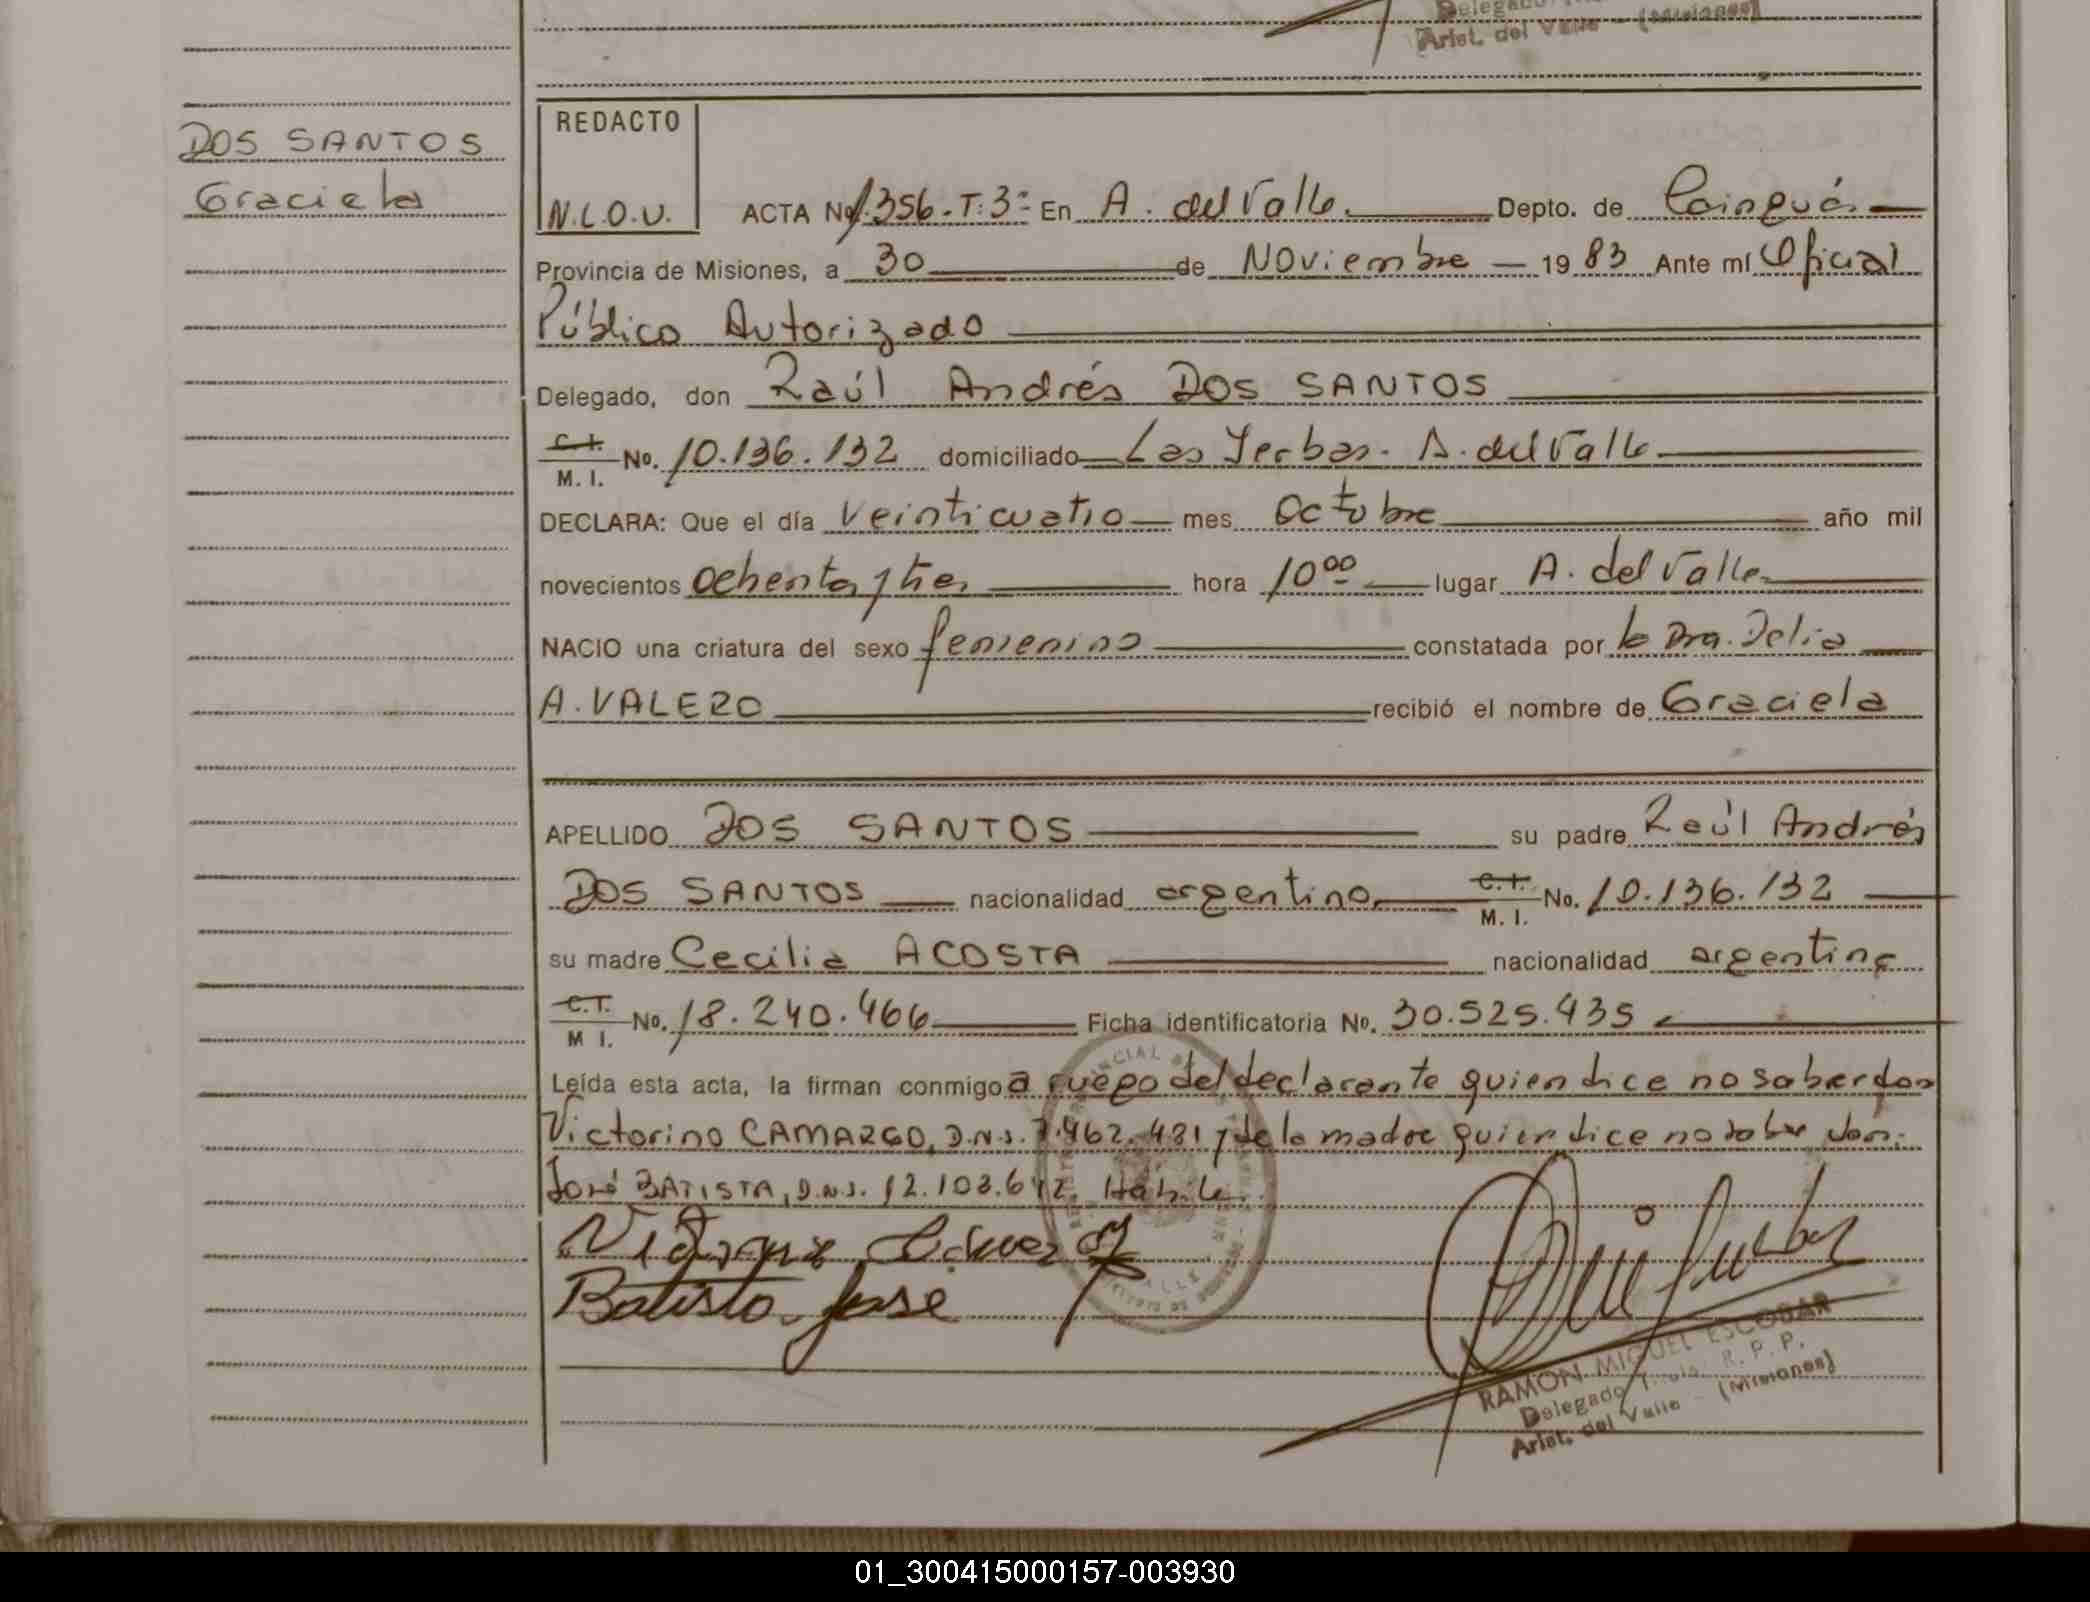 Delegado
Arist. del Valle - (Misiones)
DOS SANTOS
Graciela
REDACTO
N.L.O.U.
ACTA Nº 1.356.T:3º En A. del Valle. Depto. de Cainguás
Provincia de Misiones, a 30 de Noviembre 19 83 Ante mí Oficial
Público Autorizado
Delegado, don Raúl Andrés DOS SANTOS
C.I. / M. I. No. 10.136.132 domiciliado Las Yerbas. A. del Valle
DECLARA: Que el día veinticuatro mes Octubre año mil
novecientos ochenta y tres hora 10⁰⁰ lugar A. del Valle
NACIO una criatura del sexo femenino constatada por la Dra. Delia
A. VALERO recibió el nombre de Graciela
APELLIDO DOS SANTOS su padre Raúl Andrés
DOS SANTOS nacionalidad argentino C.I. / M. I. No. 10.136.132
su madre Cecilia ACOSTA nacionalidad argentina
C.I. / M I. No. 18.240.466 Ficha identificatoria No. 30.525.435
Leída esta acta, la firman conmigo a ruego del declarante quien dice no saber don
Victorino CAMARGO, D.N.I. 7.962.481 y de la madre quien dice no saber don.
José BATISTA, D.N.I. 12.103.612. Hábiles.
Batisto José
RAMON MIGUEL ESCOBAR
Delegado R. P. P.
Arist. del Valle - (Misiones)
01_300415000157-003930